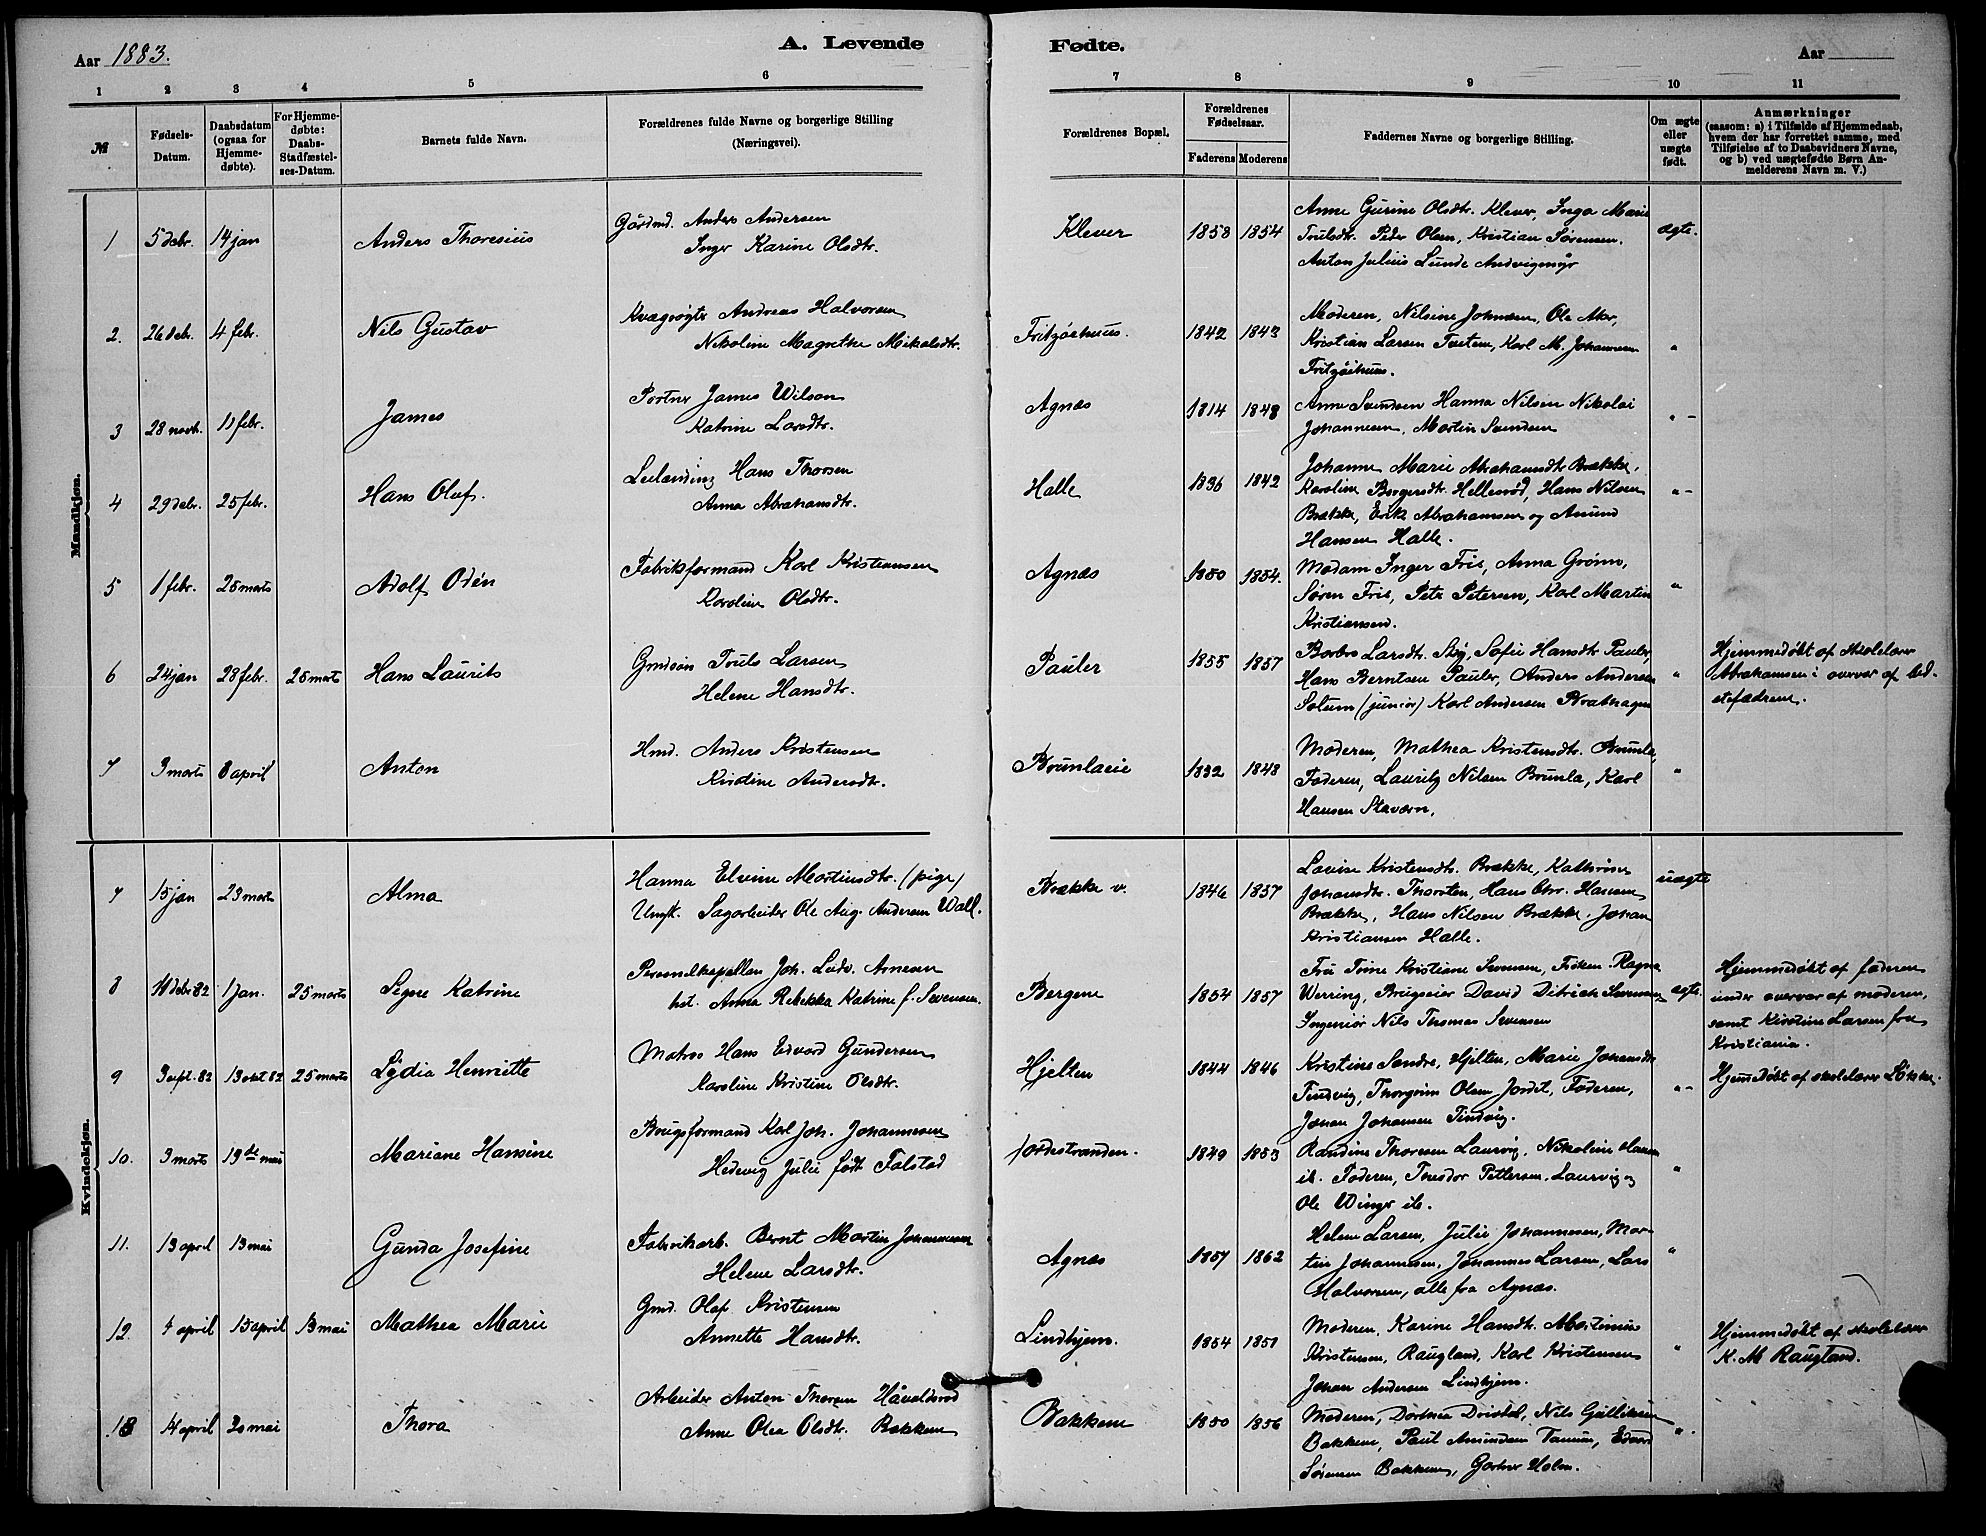 Aar 1883.
A. Levende
Fødte.
Aar
1 2 3 4 5 6 7 8 9 10 11
№
Fødsels-
Datum.
Daabsdatum
(ogsaa for
Hjemme-
døbte).
For Hjemme-
døbte:
Daabs-
Stadfæstel-
ses-Datum.
Barnets fulde Navn.
Forældrenes fulde Navne og borgerlige Stilling
(Næringsvei).
Forældrenes Bopæl.
Forældrenes
Fødselsaar.
Faderens Moderens
Faddernes Navne og borgerlige Stilling.
Om ægte
eller
uægte
født.
Anmærkninger
(saasom: a) i Tilfælde af Hjemmedaab,
hvem der har forrettet samme, med
Tilføielse af to Daabsvidners Navne,
og b) ved uægtefødte Børn An-
melderens Navn m. V.)
Mandkjøn.
1 5 debr. 14 jan Anders Thoresius
Gårdmd. Anders Andersen
Inger Karine Olsdtr.
Klever 1858 1854
Anne Gurine Olsdtr. Klever, Inga Marie
Trulsdtr. Peder Olsen, Kristian Sørensen,
Anton Julius Lunde Andvigmyr
ægte.
2. 26 debr. 4 febr. Nils Gustav
Kvægrøgter Andreas Halvorsen
Nikoline Magrethe Mikalsdtr.
Fritzøehuus. 1842 1843
Moderen, Nilsine Johnsen, Ole Aker,
Kristian Larsen Tveten, Karl M. Johannesen
Fritzøihuus.
"
3 28 novb. 11 febr. James
Portner James Wilson
Katrine Larsdtr.
Agnæs 1814 1848
Anne Svendsen Hanna Nilsen Nikolai
Johannesen, Martin Svendsen
" -
4 29 debr. 25 febr. Hans Oluf.
Leilænding Hans Thorsen
Anna Abrahamsdtr.
Halle 1836 1842
Johanne Marie Abrahamsdtr. Brække,
Karoline Borgersdtr. Hellesrød, Hans Nilsen
Brække, Erik Abrahamsen og Amund
Hansen Halle.
" -
5 1 febr. 25 marts Adolf Odin
Fabriksformand Karl Kristiansen
Karoline Olsdtr.
Agnæs 1850 1854.
Madam Inger Fris, Anna Grønn,
Søren Fris, Peter Petersen, Karl Martin
Kristiansen.
"
6 24 jan 28 febr. 25 marts Hans Laurits
Grndsøn Truls Larsen
Helene Hansdtr.
Pauler 1855 1857
Barbro Larsdtr. Sofie Hansdtr Pauler,
Hans Berntsen Pauler, Anders Andersen
Solum (junior) Karl Andersen
"
Hjemmedøbt af skolelærer
Abrahamsen i overvær af bed-
stefædrene.
7 3 marts 8 april Anton
Hmd. Anders Kristensen
Kirstine Andersdtr.
Brunlaeie 1832 1848
Moderen, Mathea Kristensdtr. Brunla,
Faderen, Lauritz Nilsen Brunla, Karl
Hansen Stavern.
"
Kvindekjøn.
7 15 jan 23 marts Alma
Hanna Elvine Martinsdtr. (pige)
Ungk. Sagarbeider Ole Aug. Andersen Wall.
Brække v. 1846 1857
Lovise Kristensdtr. Brække, Kathrine
Johansdtr. Thorsten, Hans Chr. Hansen
Brække, Hans Nilsen Brække. Johan
Kristiansen Halle.
uægte
8 10 debr 82 1 jan. 25 marts Signe Katrine
Personelkapellan Joh. Ludv. Arnesen
hst. Anna Rebekka Katrine f. Sevensen.
Bergene 1854 1857
Fru Trine Kristiane Svensen, Frøken Ragna
Werring, Brugseier David Ditrich Svensen
Ingeniør Nils Thomas Svensen
ægte.
Hjemmedøbt af faderen
under overvær af moderen,
samt Kirstine Larsen fra
Kristiania.
9 3 sept. 82 13 okt 82 25 marts Lydia Henriette
Matros Hans Edvard Gundersen
Karoline Kristine Olsdtr.
Hjelten 1844 1846
Kristine Søndre, Hjelten, Marie Johansdtr
Tindvig, Thorgrim Olsen Jordet, Faderen,
Johan Johansen Tindvig.
" -
Hjemmedøbt af skolelærer Løkke.
10. 3 marts 13de mai Mariane Hansine
Brugsformand Karl Joh. Johannesen
Hedevig Julie født Falstad
Jordestranden. 1849 1853
Randine Thoresen Laurvig, Nikoline Hansen
ib. Faderen, Theodor Pettersen, Laurvig og
Ole Winger ib.
"
11. 13 april 13 mai Gunda Josefine
Fabrikarb. Bernt Martin Johannesen
Helene Larsdtr.
Agnæs 1857 1862
Helene Larsen, Julie Johannesen, Mar-
tin Johannesen, Johannes Larsen, Lars
Halvorsen, alle fra Agnæs.
"
12. 4 april 15 april 13 mai Mathea Marie
Gmd. Olaf Kristensen
Annette Hansdtr.
Lindhjem. 1854 1851
Moderen, Karine Hansdtr. Martinius
Kristensen, Raugland, Karl Kristensen
Johan Andersen Lindhjem.
"
Hjemmedøbt af skolelærer
K. M Raugland.
13 14 april 20 mai Thora
Arbeider Anton Thorsen Håvaldsrød
Anne Olea Olsdtr. Bakkene
Bakkene 1850 1856
Moderen, Dorthea Nils Gulliksen
Bakkene, Paul Amundsen Tanum, Edvard
Sørensen Bakkene, Gartner Holm.
"